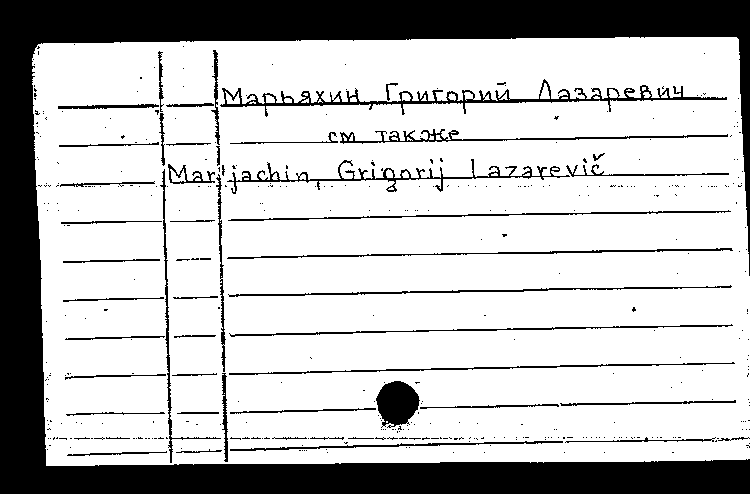 Марьяхин, Григорий Лазаревич
см также
Mar'jachin, Grigorij Lazarevič